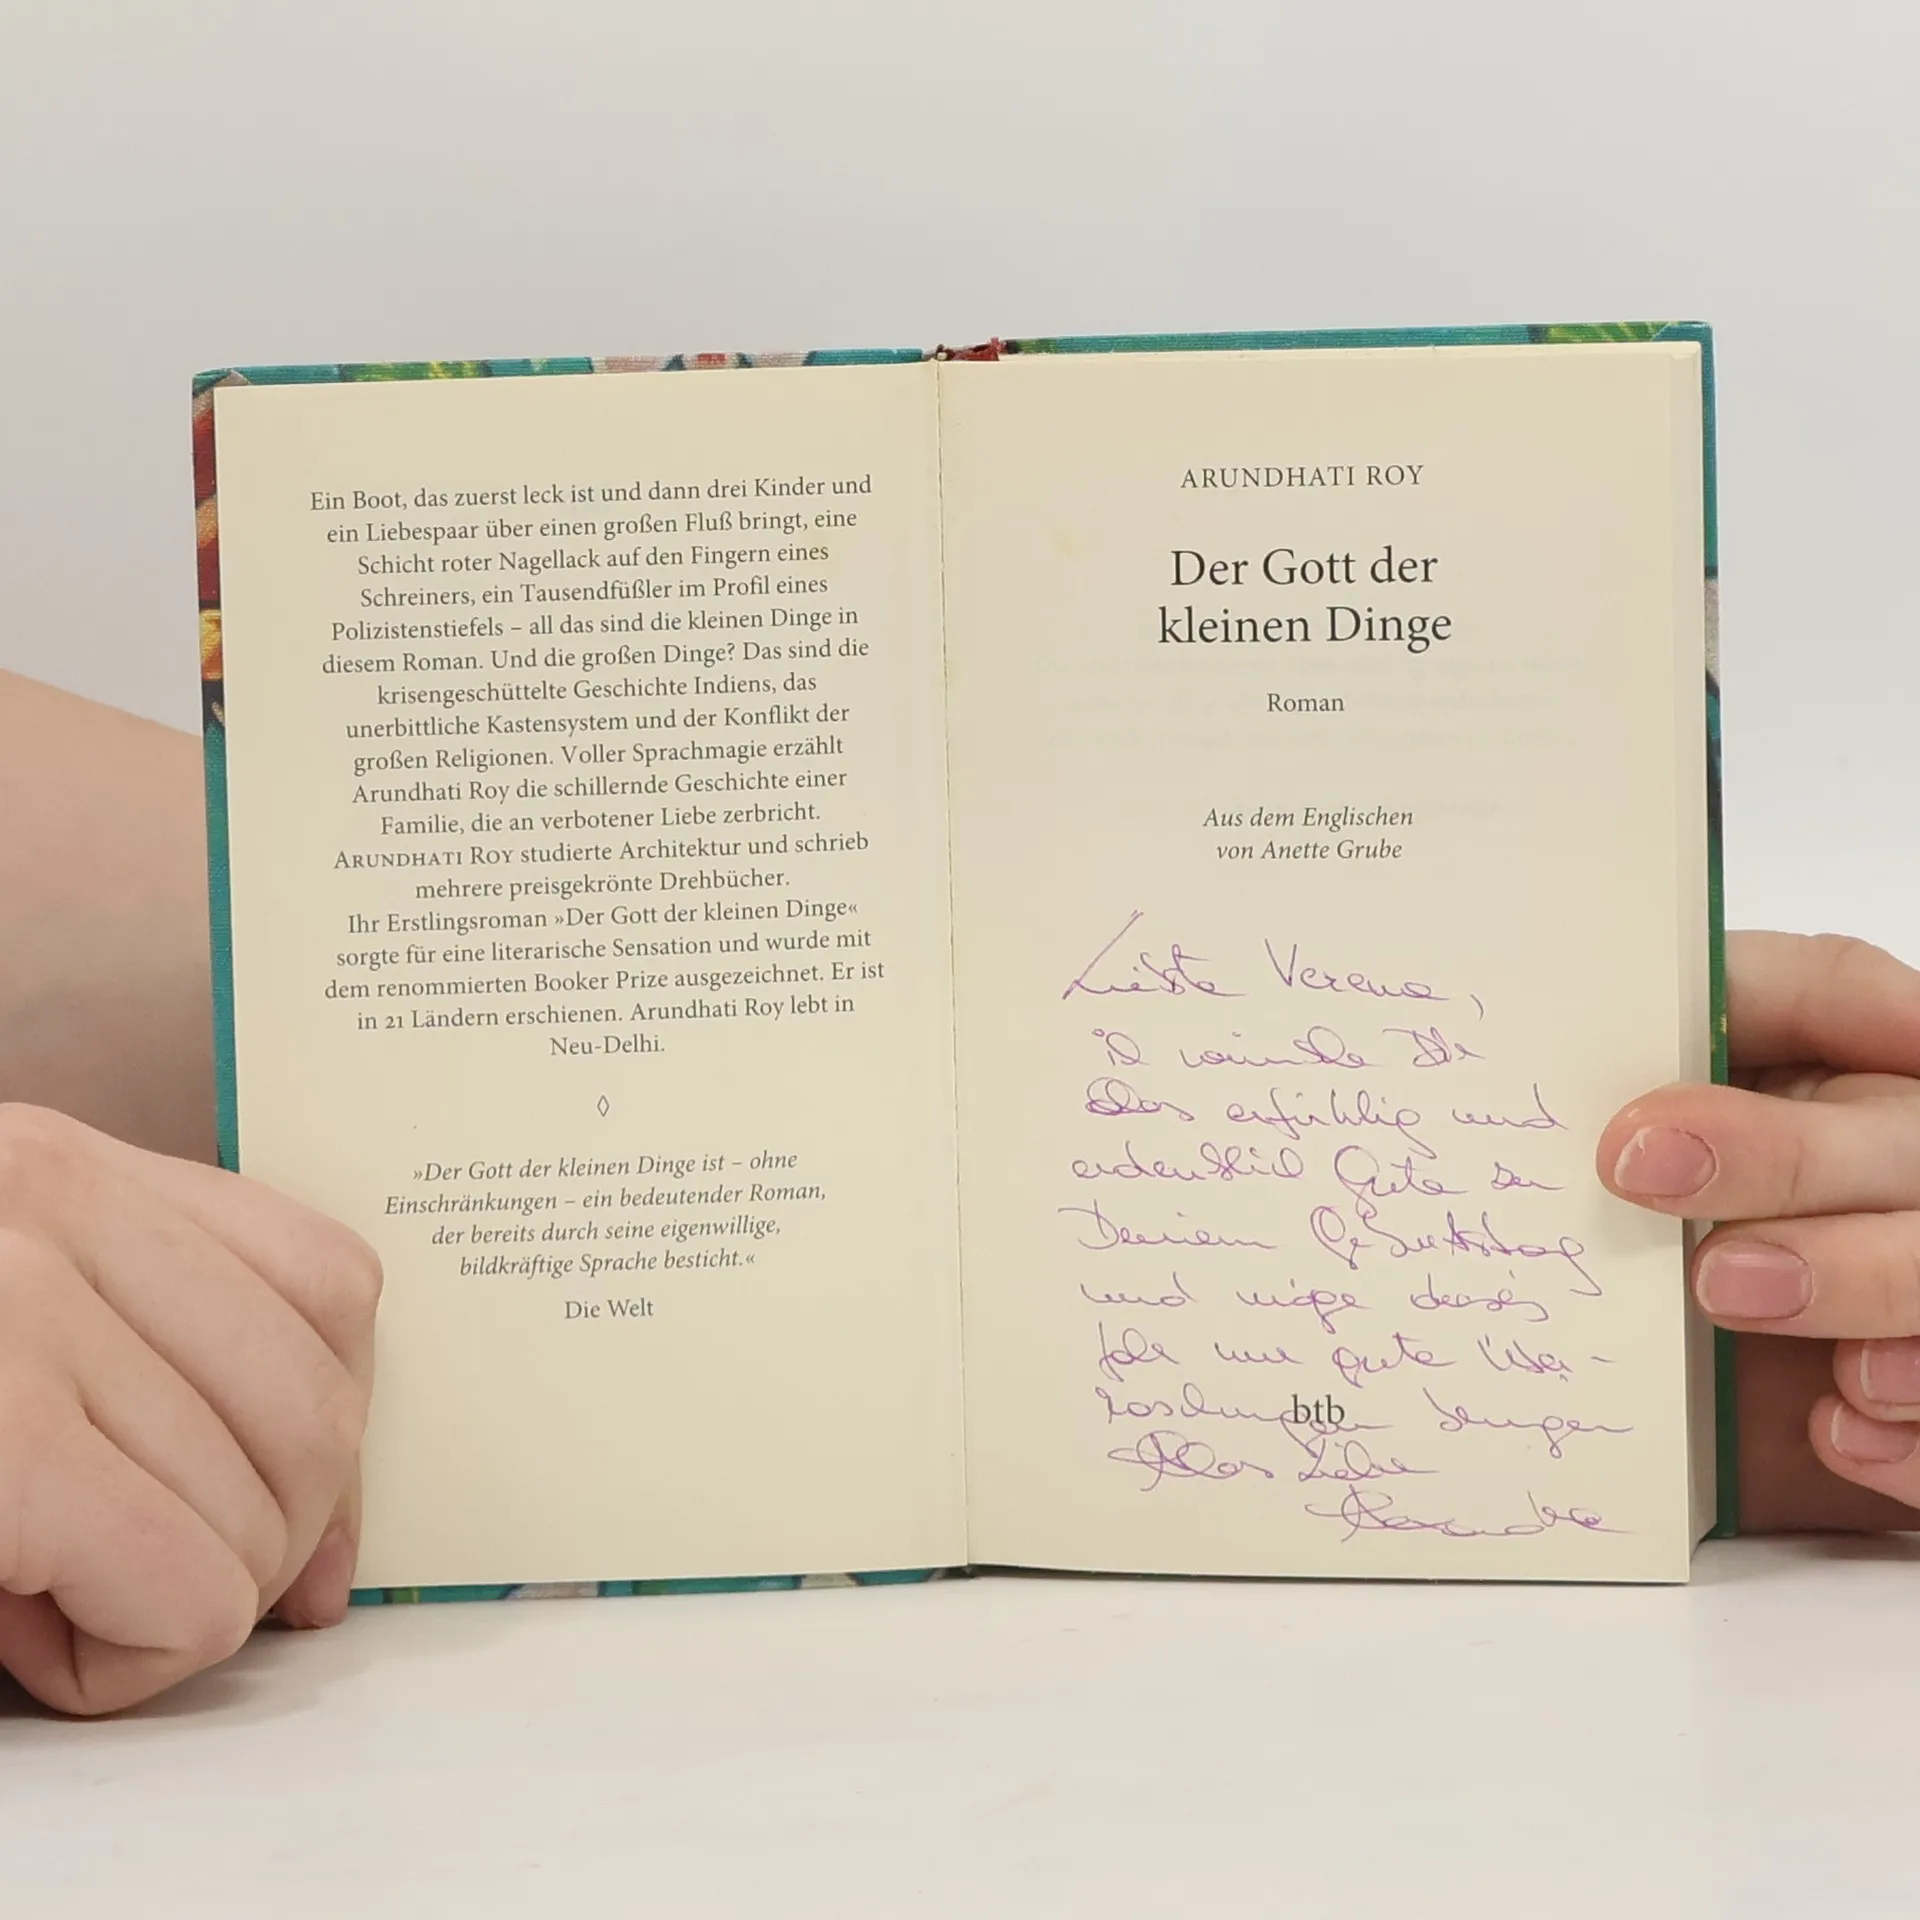 Ein Boot, das zuerst leck ist und dann drei Kinder und
ein Liebespaar über einen großen Fluß bringt, eine
Schicht roter Nagellack auf den Fingern eines
Schreiners, ein Tausendfüßler im Profil eines
Polizistenstiefels – all das sind die kleinen Dinge in
diesem Roman. Und die großen Dinge? Das sind die
krisengeschüttelte Geschichte Indiens, das
unerbittliche Kastensystem und der Konflikt der
großen Religionen. Voller Sprachmagie erzählt
Arundhati Roy die schillernde Geschichte einer
Familie, die an verbotener Liebe zerbricht.
ARUNDHATI ROY studierte Architektur und schrieb
mehrere preisgekrönte Drehbücher.
Ihr Erstlingsroman »Der Gott der kleinen Dinge«
sorgte für eine literarische Sensation und wurde mit
dem renommierten Booker Prize ausgezeichnet. Er ist
in 21 Ländern erschienen. Arundhati Roy lebt in
Neu-Delhi.
»Der Gott der kleinen Dinge ist – ohne
Einschränkungen – ein bedeutender Roman,
der bereits durch seine eigenwillige,
bildkräftige Sprache besticht.«
Die Welt
ARUNDHATI ROY
Der Gott der
kleinen Dinge
Roman
Aus dem Englischen
von Anette Grube
Liebste Verena,
ich wünsche Dir
alles und
ordentlich Gute zu
Deinem Geburtstag
und möge dieses
Jahr nur gute Über-
raschungen bringen
btb
Alles Liebe